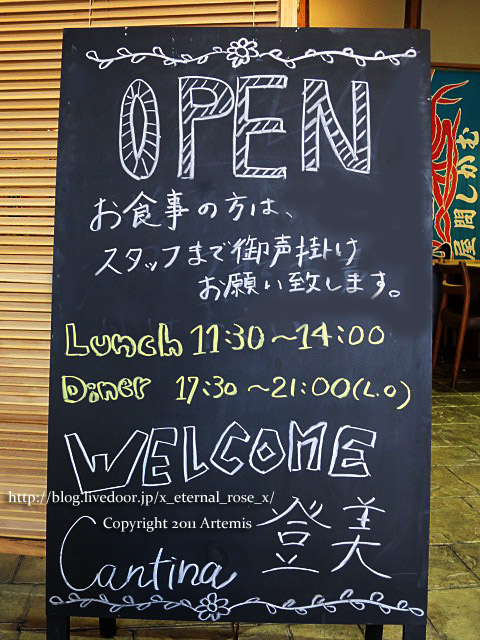 OPEN
お食事の方は、
スタッフまで御声掛け
お願い致します。
Lunch 11:30～14:00
Diner 17:30～21:00(L.O)
WELCOME
http://blog.livedoor.jp/x_eternal_rose_x/
Copyright 2011 Artemis
Cantina 登美
むかし問屋